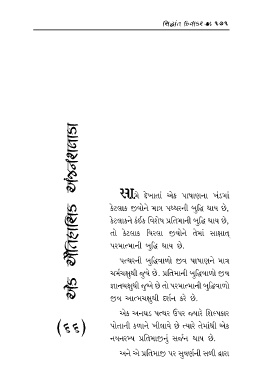 સિદ્ધાંત દિવાકર ૧૭૧
એક ઐતિહાસિક અંજનશલાકા
(૬૬)
સામે દેખાતાં એક પાષાણના ખંડમાં
કેટલાક જીવોને માત્ર પથ્થરની બુદ્ધિ થાય છે,
કેટલાકને કંઈક વિશેષ પ્રતિમાની બુદ્ધિ થાય છે,
તો કેટલાક વિરલા જીવોને તેમાં સાક્ષાત્
પરમાત્માની બુદ્ધિ થાય છે.
પત્થરની બુદ્ધિવાળો જીવ પાષાણને માત્ર
ચર્મચક્ષુથી જુવે છે. પ્રતિમાની બુદ્ધિવાળો જીવ
જ્ઞાનચક્ષુથી જુએ છે તો પરમાત્માની બુદ્ધિવાળો
જીવ આત્મચક્ષુથી દર્શન કરે છે.
એક અનઘડ પત્થર ઉપર જ્યારે શિલ્પકાર
પોતાની કળાને ખીલાવે છે ત્યારે તેમાંથી એક
નયનરમ્ય પ્રતિમાજીનું સર્જન થાય છે.
અને એ પ્રતિમાજી પર સુવર્ણની સળી દ્વારા